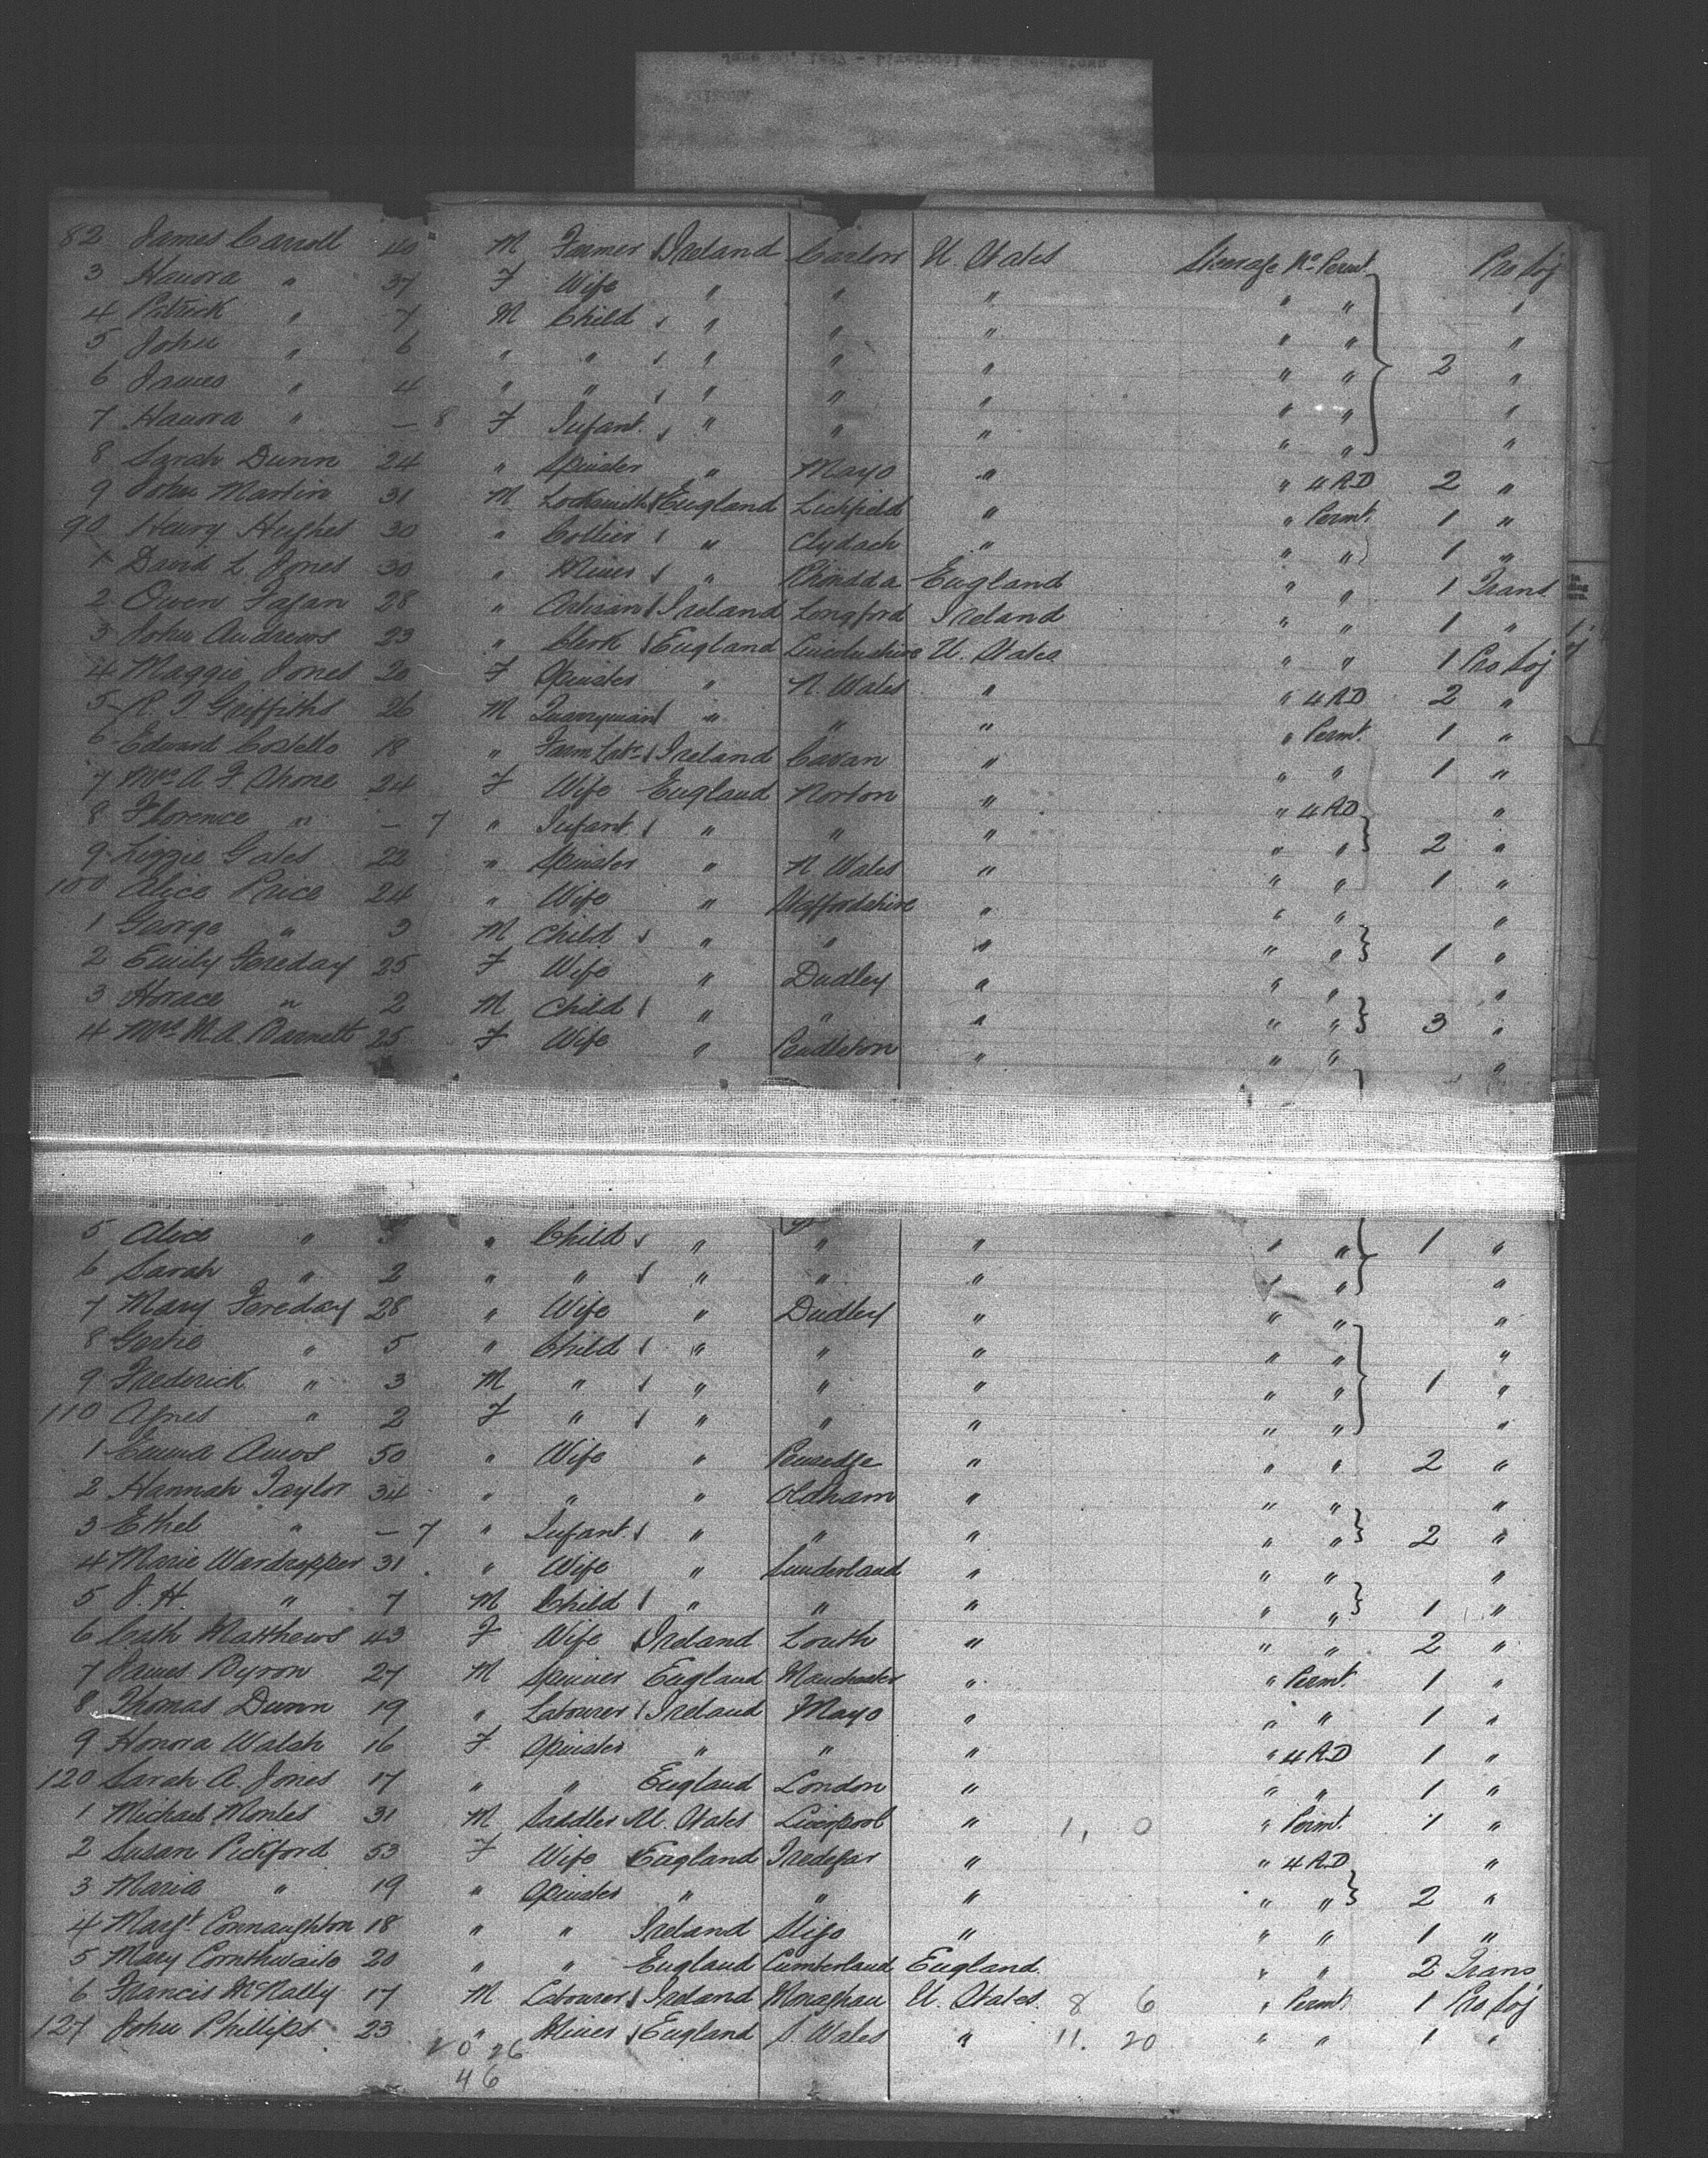 82 James Carroll 40 M Farmer Ireland Carlow U. States Steerage No. Permt. Pro Soj
3 Hanora " 37 F Wife " " " " " "
4 Patrick " 7 M Child " " " " " "
5 John " 6 " " " " " " " "
6 James " 4 " " " " " " " 2 "
7 Hanora " — 8 F Infant " " " " " "
8 Sarah Dunn 24 " Spinster " Mayo " " 4 RD 2 "
9 John Martin 31 M Locksmith England Lichfield " " Permt. 1 "
90 Henry Hughes 30 " Collier " Clydach " " " 1 "
1 David L. Jones 30 " Miner " Rhondda England " " 1 Trans
2 Owen Fagan 28 " Artisan Ireland Longford Ireland " " 1 "
3 John Andrews 23 " Clerk England Lincolnshire U. States " " 1 Pro Soj
4 Maggie Jones 20 F Spinster " N. Wales " " 4 RD 2 "
5 R. J. Griffiths 26 M Quarryman " " " " Permt. 1 "
6 Edward Costello 18 " Farm Labr. Ireland Cavan " " " 1 "
7 Mrs. A. F. Shone 24 F Wife England Norton " " 4 RD "
8 Florence " — 7 " Infant " " " " " 2 "
9 Lizzie Gales 22 " Spinster " N. Wales " " " 1 "
100 Alice Price 24 " Wife " Staffordshire " " " "
1 George " 3 M Child " " " " " 1 "
2 Emily Fereday 25 F Wife " Dudley " " " "
3 Horace " 2 M Child " " " " " 3 "
4 Mrs. M. A. Barnett 25 F Wife " Pendleton " " " "
5 Alice " " Child " " " " " 1 "
6 Sarah " 2 " " " " " " " "
7 Mary Fereday 28 " Wife " Dudley " " " "
8 Gertie " 5 " Child " " " " " "
9 Frederick " 3 M " " " " " " 1 "
110 Agnes " 2 F " " " " " " "
1 Emma Amos 50 " Wife " " " " 2 "
2 Hannah Taylor 34 " " " Oldham " " " "
3 Ethel " — 7 " Infant " " " " " 2 "
4 Marie Wardropper 31 " Wife " Sunderland " " " "
5 J. H. " 7 M Child " " " " " 1 "
6 Cath Matthews 43 F Wife Ireland Louth " " " 2 "
7 James Byron 27 M Spinner England Manchester " " Permt. 1 "
8 Thomas Dunn 19 " Labourer Ireland Mayo " " " 1 "
9 Honora Walsh 16 F Spinster " " " " 4 RD 1 "
120 Sarah A. Jones 17 " " England London " " " 1 "
1 Michael 31 M Saddler U. States Liverpool " 1, 0 " Permt. 1 "
2 Susan Pickford 53 F Wife England Tredegar " " 4 RD "
3 Maria " 19 " Spinster " " " " " 2 "
4 Margt. Connaughton 18 " " Ireland Sligo " " " 1 "
5 Mary Cornthwaite 20 " " England Cumberland England " " 2 Trans
6 Francis McNally 17 M Labourer Ireland Monaghan U. States 8 6 " Permt. 1 Pro Soj
127 John Phillips 23 " Miner England S. Wales " 11. 20 " " 1 "
20 26
46